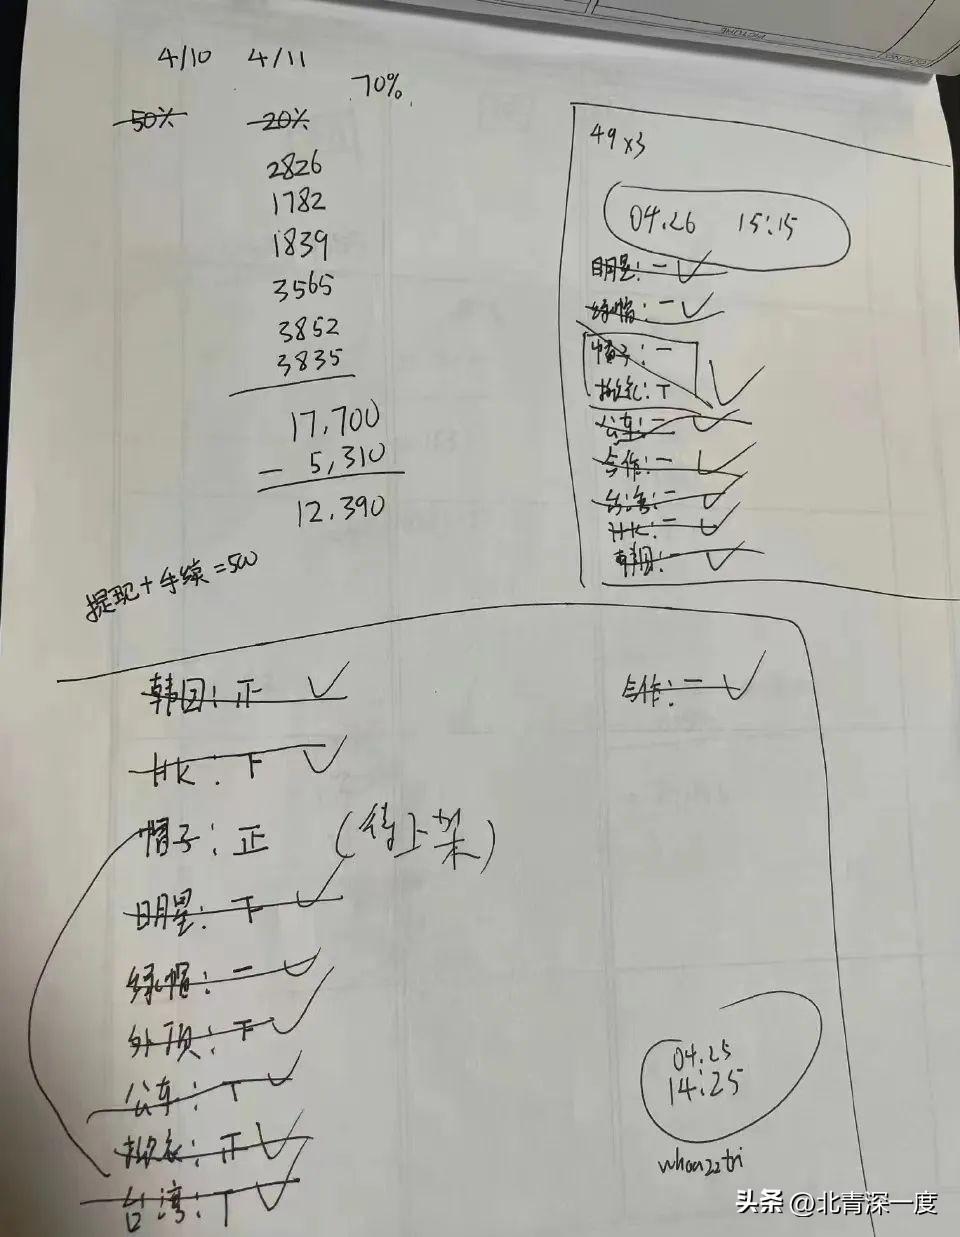 4/10 4/11
70%
50% 20%
2826
1782
1839
3565
3852
3835
17,700
- 5,310
12,390
提现+手续=500
49x3
04.26 15:15
明星:一
绿帽:一
帽子:一
公车:一
合作:一
台湾:一
HK:一
韩团:一
韩团:正
合作:一
HK:下
帽子:正 (待上架)
明星:下
绿帽:一
外顶:下
公车:丅
台湾:丅
04.25
14:25
头条 @北青深一度